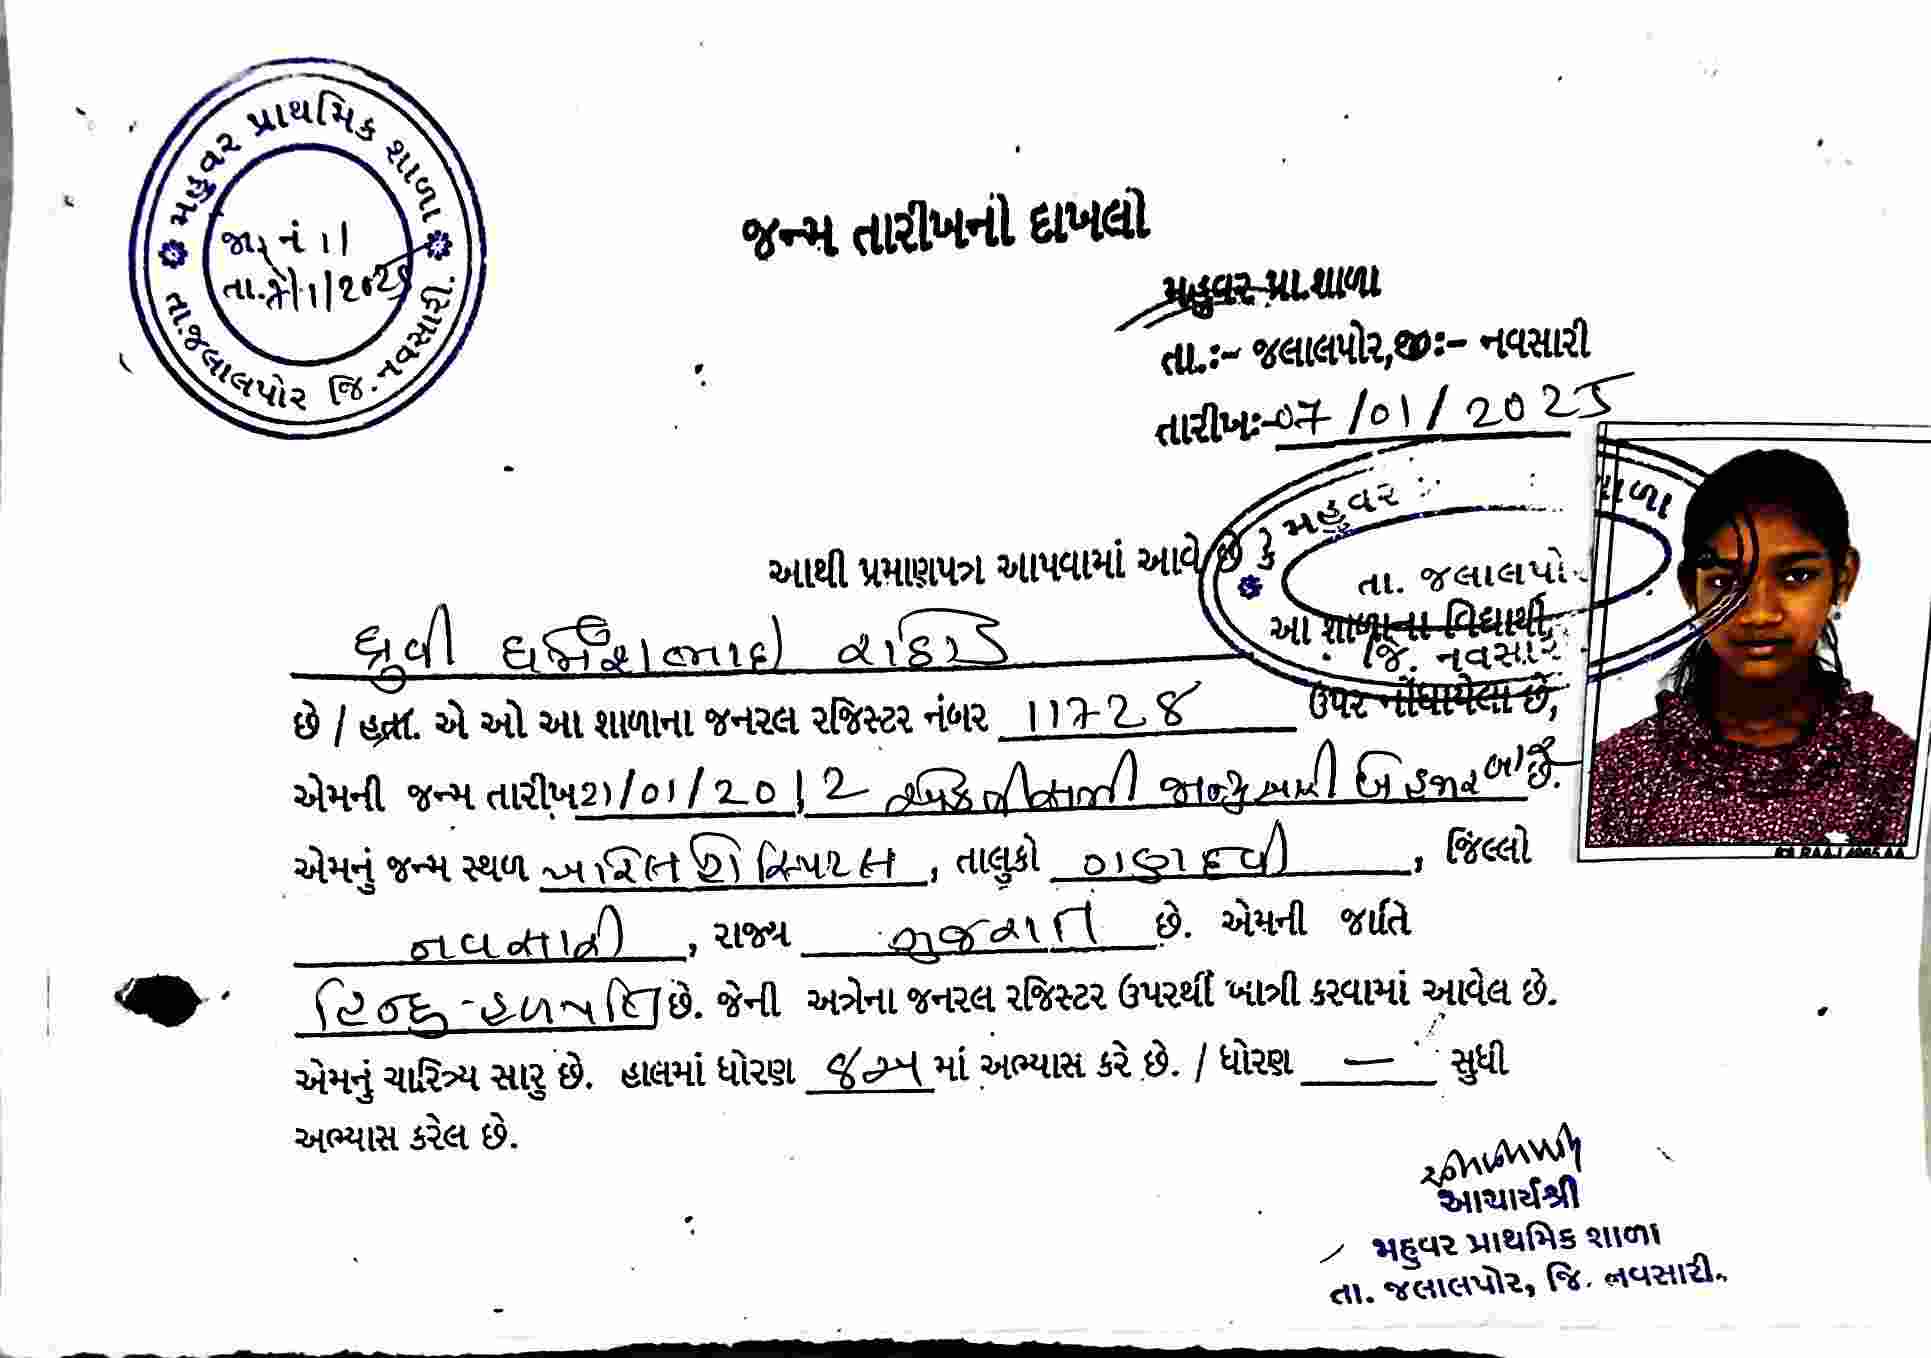 મહુવર પ્રાથમિક શાળા
જા નં ૧૧
તા. ૭/૧/૨૦૨૫
તા.જલાલપોર જિ.નવસારી.
જન્મ તારીખનો દાખલો
મહુવર પ્રા.શાળા
તા.:- જલાલપોર,જી:- નવસારી
તારીખ:- 07/01/2025
મહુવર શાળા
તા. જલાલપોર
જિ. નવસારી
આથી પ્રમાણપત્ર આપવામાં આવે છે કે
ધ્રુવી ધર્મેશભાઇ રાઠોડ આ શાળાના વિદ્યાર્થી
છે / હતા. એ ઓ આ શાળાના જનરલ રજિસ્ટર નંબર 11728 ઉપર નોંધાયેલા છે,
એમની જન્મ તારીખ 21/01/2012 એકવીસમી જાન્યુઆરી બે હજાર બાર છે.
એમનું જન્મ સ્થળ હોસ્પિટલ, તાલુકો ગણદેવી, જિલ્લો
નવસારી, રાજય ગુજરાત છે. એમની જાતિ
હિન્દુ - હળપતિ છે. જેની અત્રેના જનરલ રજિસ્ટર ઉપરથી ખાત્રી કરવામાં આવેલ છે.
એમનું ચારિત્ર્ય સારુ છે. હાલમાં ધોરણ માં અભ્યાસ કરે છે. / ધોરણ — સુધી
અભ્યાસ કરેલ છે.
આચાર્યશ્રી
મહુવર પ્રાથમિક શાળા
તા. જલાલપોર, જિ. નવસારી.